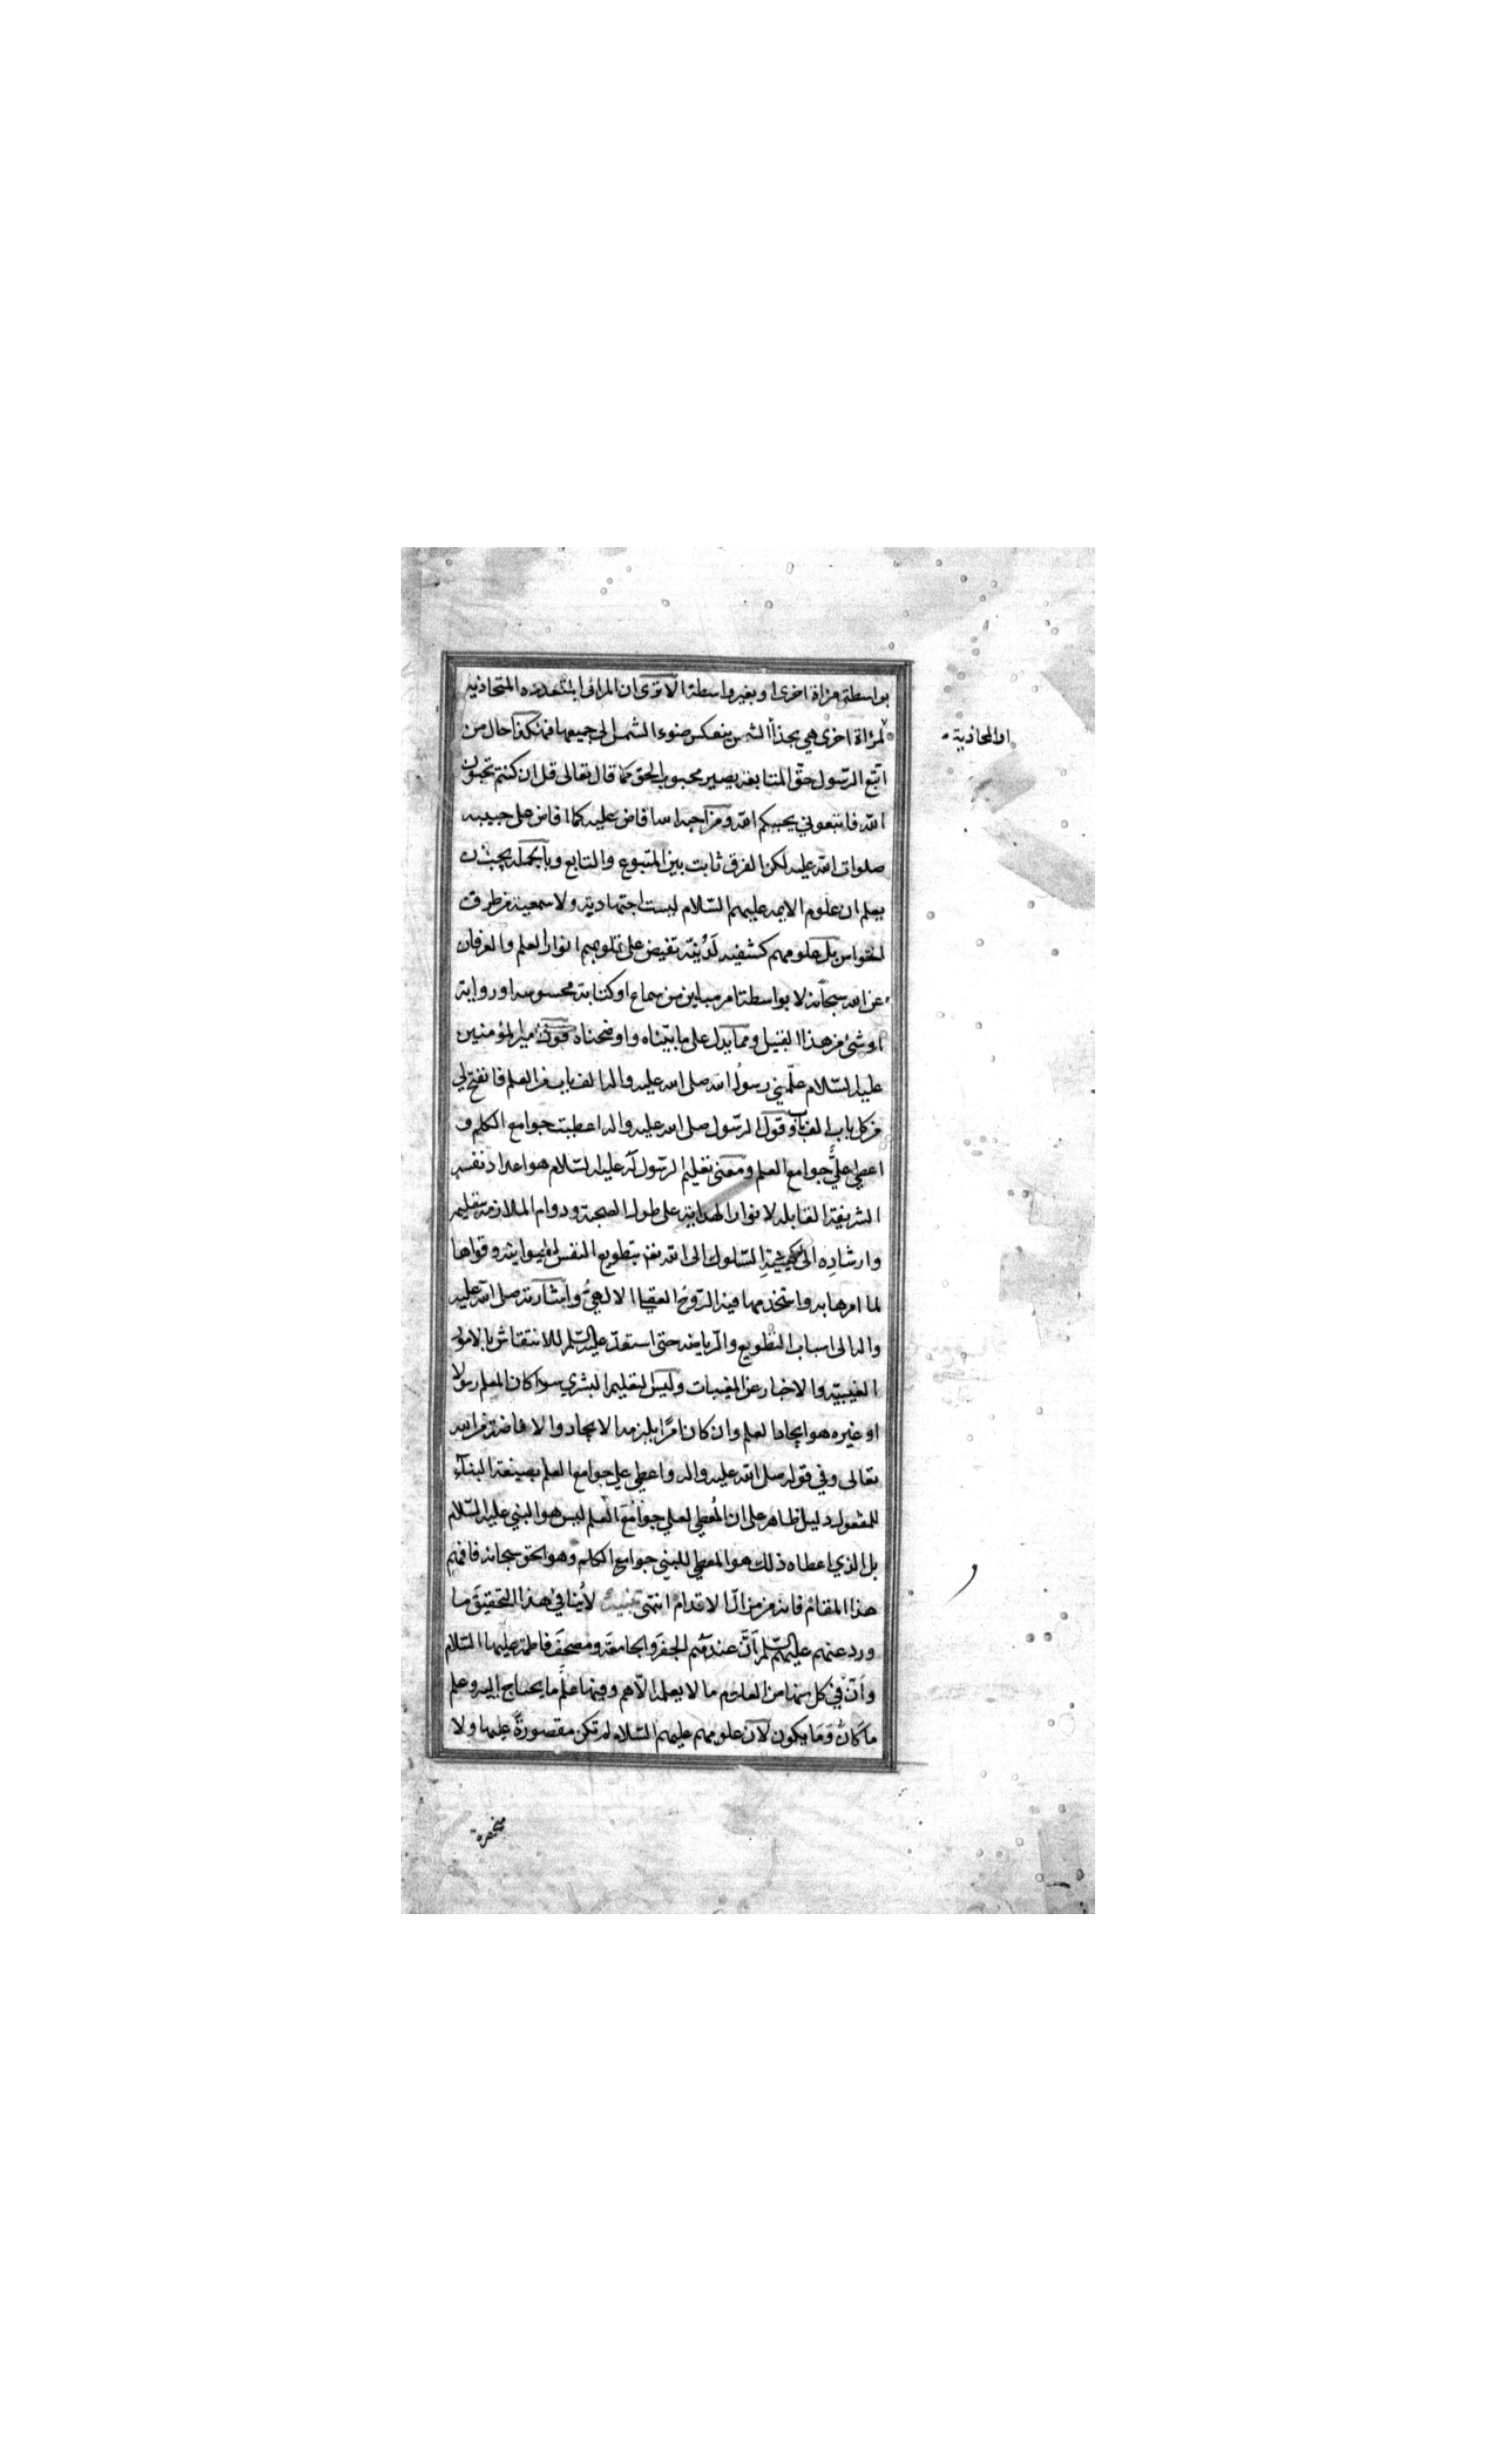 بواسطة مرآة اخرى او بغير واسطة الا ترى ان المرائي المتعددة المتحاذية
او المحاذية
لمرآة اخرى هي بحذاء الشمس ينعكس ضوء الشمس الى جميعها فهكذا حال من
اتّبع الرّسول حقّ المتابعة يصير محبوب الحق كما قال تعالى قل ان كنتم تحبون
الله فاتبعوني يحببكم الله ومن احبه الله افاض عليه كما افاض على حبيبه
صلوات الله عليه لكن الفرق ثابت بين المتبوع والتابع وبالجملة يجب ان
يعلم ان علوم الايمة عليهم السّلام ليست اجتهادية ولا سمعية من طرق
الحواس بل علومهم كشفية لَدُنيّة تفيض على قلوبهم انوار العلم والعرفان
عن الله سبحانه لا بواسطة امر مباين من سماع او كتابة محسوسة او رواية
او شئ من هذا القبيل ومما يدل على ما بيّنّاه واوضحناه قول امير المؤمنين
عليه السّلام علّمني رسول الله صلى الله عليه واله الف باب من العلم فانفتح لي
من كل باب الف باب وقول الرّسول صلى الله عليه واله اعطيت جوامع الكلم و
اعطي عليٌّ جوامع العلم ومعنى تعليم الرسول له عليه السّلام هو اعداد نفسه
الشريفة القابلة لانوار الهداية على طول الصحبة ودوام الملازمة بتعليمه
وارشادِه الى كيفيّةِ السّلوك الى الله تعالى بتطويع النفس الحيوانية وقواها
لما امرها به واستخدمها فيه الرّوح العقلي الالهيُّ واشارته صلى الله عليه
واله الى اسباب التطويع والرّياضة حتى استعدّ عليه السّلم للانتقاش بالامور
الغيبيّة والاخبار عن المغيبات وليس التعليم البشري سواء كان المعلم رسولا
او غيره هو ايجاد العلم وان كان امرًا يلزمه الايجاد والافاضة من الله
تعالى وفي قوله صلى الله عليه واله واعطي علي جوامع العلم بصيغة البنآء
للمفعول دليل ظاهر على ان المُعطي لعلي جوامعَ العلم ليس هو النبي عليه السّلام
بل الذي اعطاه ذلك هو المعطي للنبي جوامع الكلم وهو الحق سبحانه فافهم
هذا المقام فانه من مزالّ الاقدام انتهى تنبيه لا ينافي هذا التحقيقَ ما
ورد عنهم عليهم السّلم اَنّ عندهم الجفرَ والجامعةَ ومصحفَ فاطمة عليها السّلام
وانّ في كل منها من العلوم ما لا يعلمه الّا هم وفيها علم ما يحتاج اليه وعلم
ما كان وَمَا يكون لانّ علومهم عليهم السّلام لم تكن مقصورةً عليها ولا
منحصرة